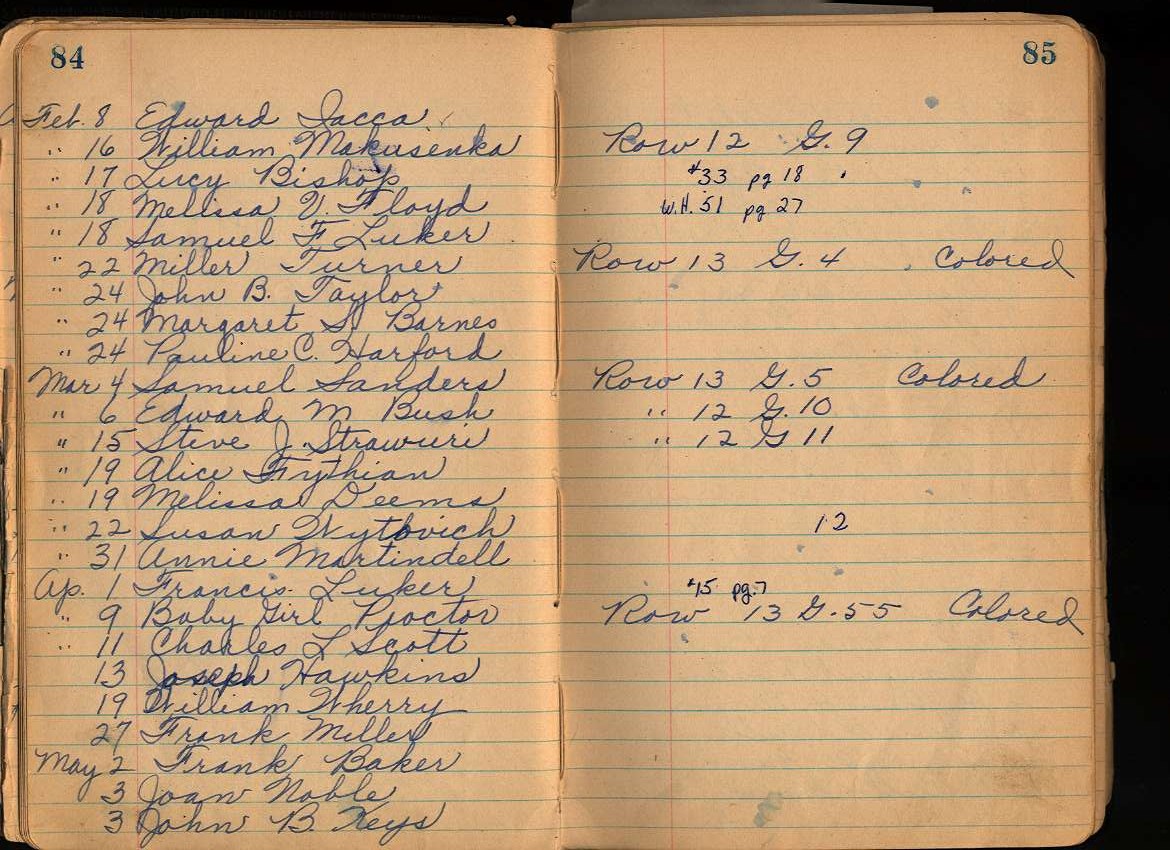 84
85
Feb. 8 Edward Iacca
" 16 William Makusenka Row 12 G. 9
" 17 Lucy Bishop #33 pg 18
" 18 Mellissa V. Floyd W.H. 51 pg 27
" 18 Samuel F Luker
" 22 Miller Turner Row 13 G. 4 Colored
" 24 John B. Taylor
" 24 Margaret S. Barnes
" 24 Pauline C. Harford
Mar 4 Samuel Sanders Row 13 G. 5 Colored
" 6 Edward M Bush " 12 G. 10
" 15 Steve J. Strawuri " 12 G 11
" 19 Alice Frythian
" 19 Melissa Deems
" 22 Susan Wytovich 12
" 31 Annie Martindell
Ap. 1 Francis Luker #15 pg. 7
" 9 Baby Girl Proctor Row 13 G. 55 Colored
" 11 Charles L Scott
13 Joseph Hawkins
19 William Wherry
27 Frank Miller
May 2 Frank Baker
3 Joan Noble
3 John B. Keys